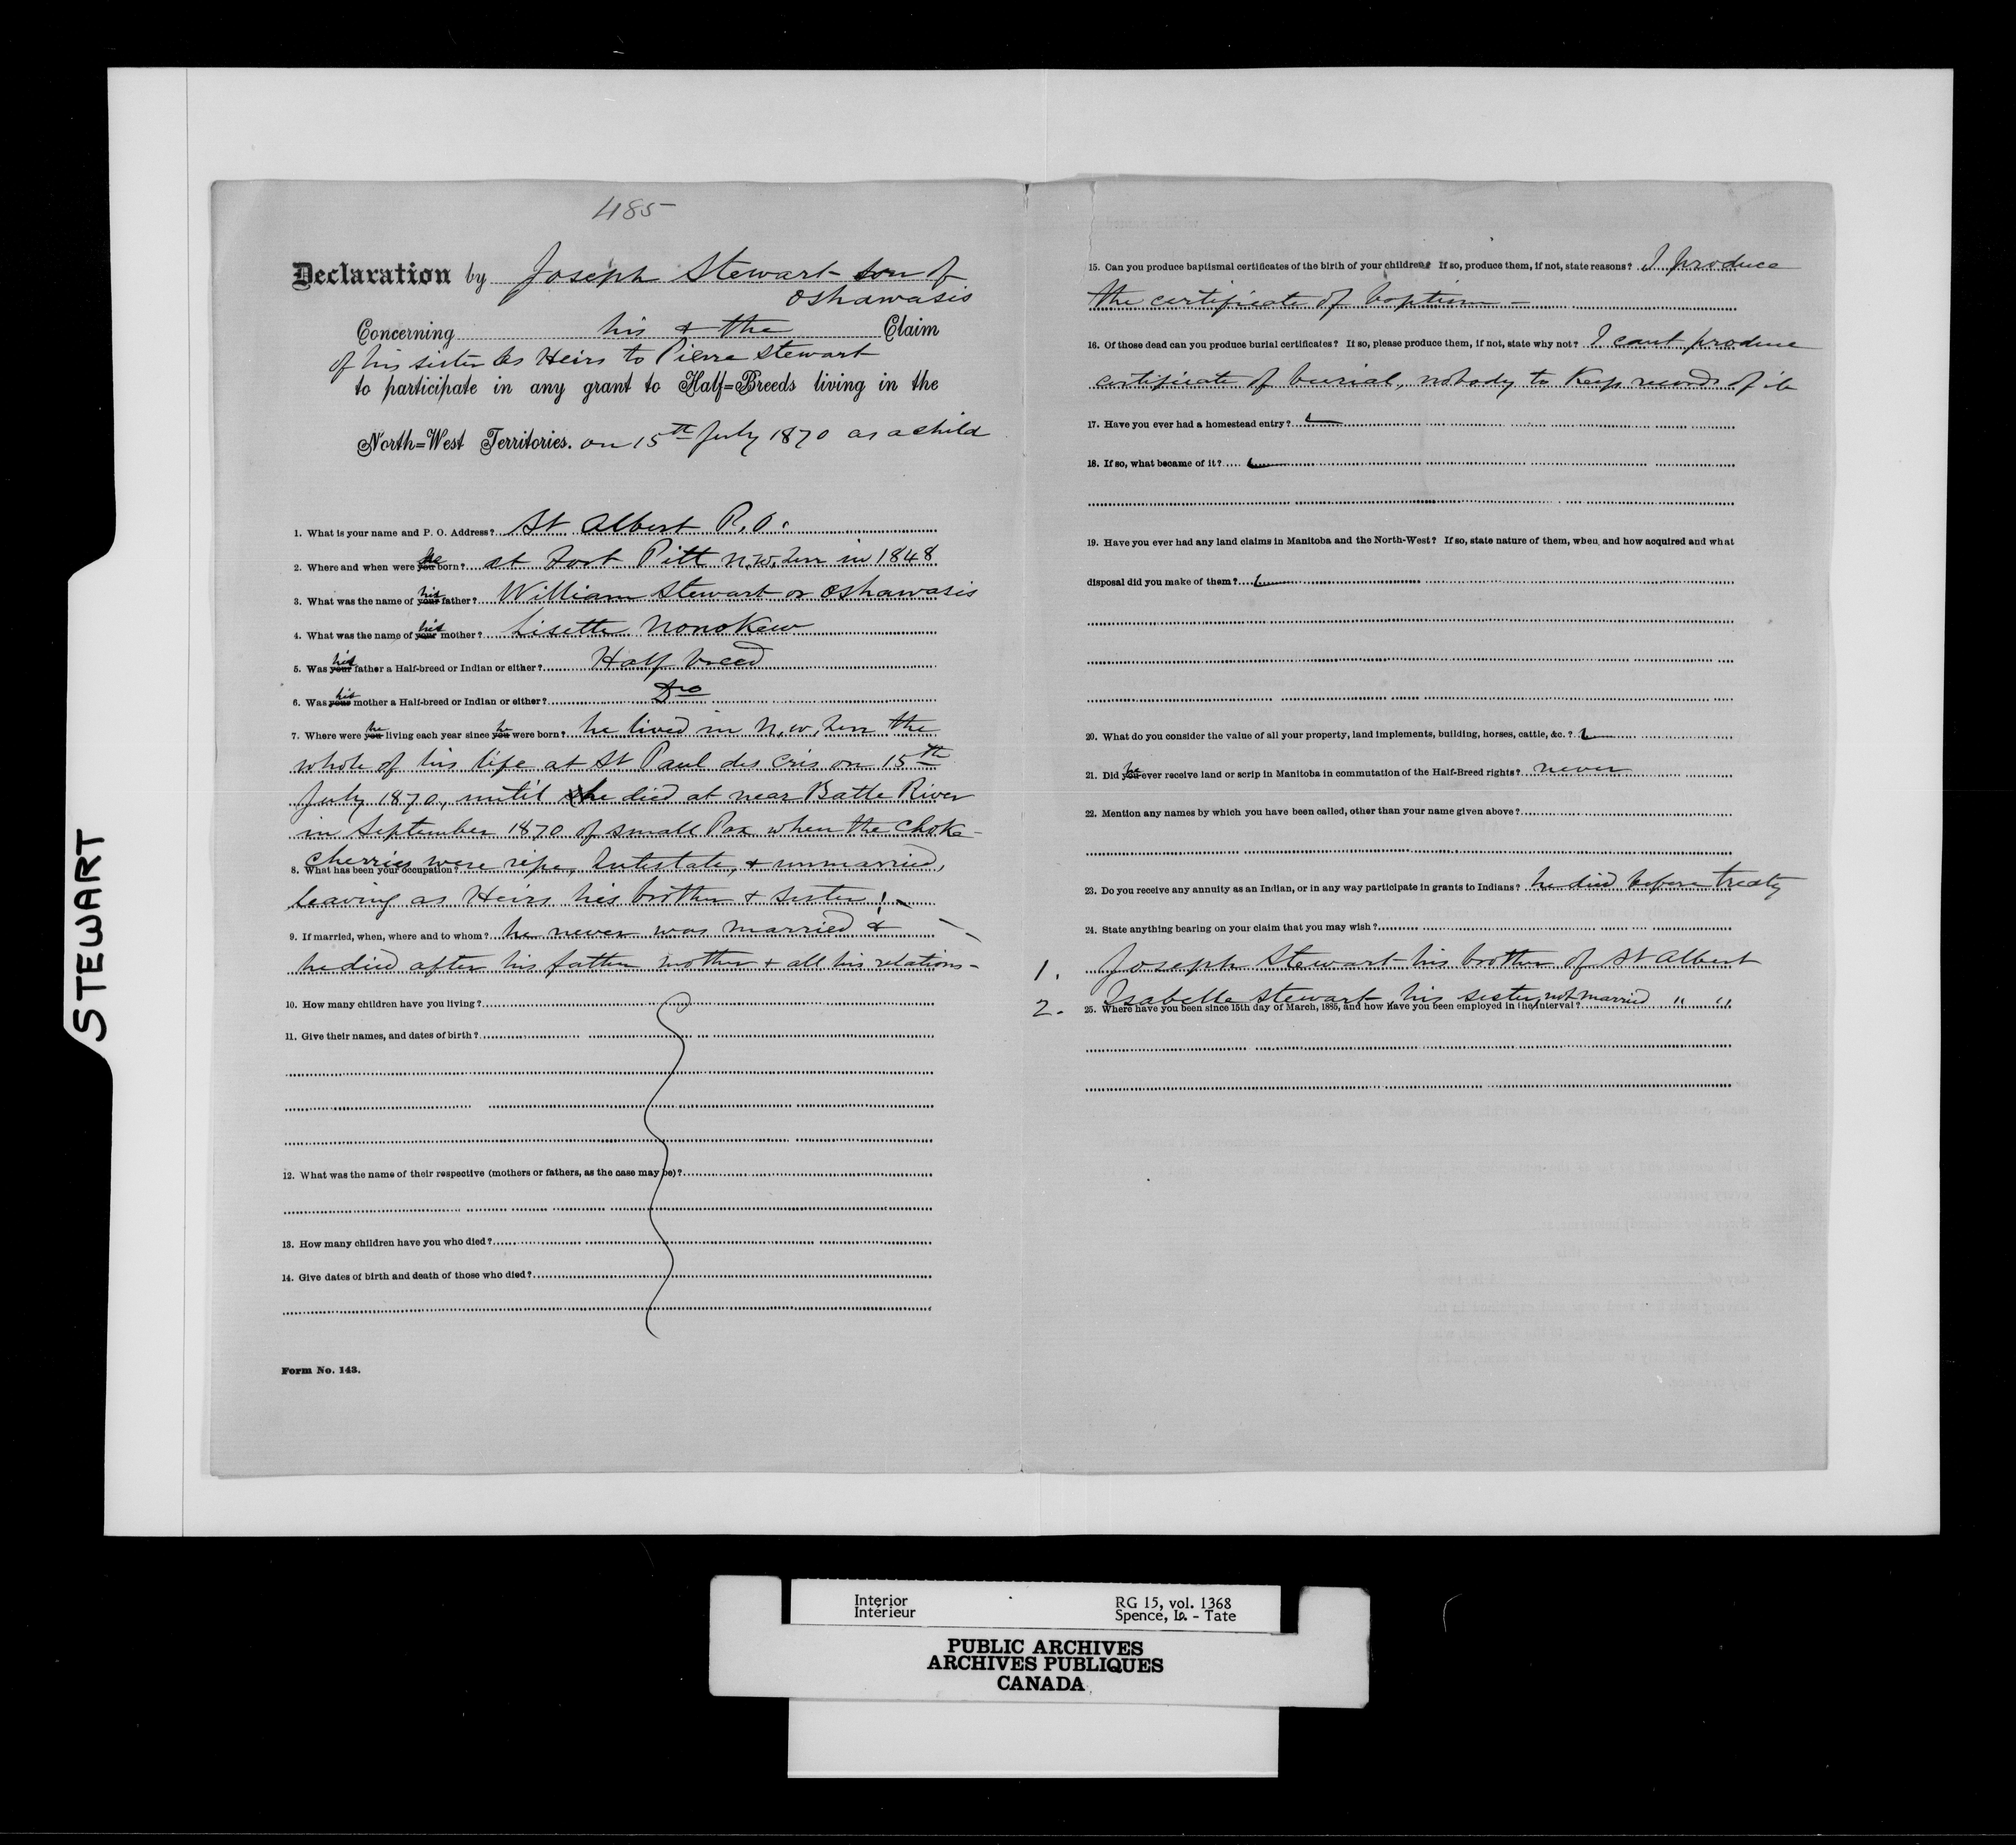 485
Declaration by Joseph Stewart son of
Oshawasis
Concerning his & the Claim
of his sister as Heirs to Pierre Stewart
to participate in any grant to Half=Breeds living in the
North=West Territories. on 15th July 1870 as a child
1. What is your name and P. O. Address? St Albert P.O.
2. Where and when were you he born? at Fort Pitt N.W. Terr in 1848
3. What was the name of your his father? William Stewart or Oshawasis
4. What was the name of your his mother? Lisette Nonokew
5. Was your his father a Half-breed or Indian or either? Half breed
6. Was your his mother a Half-breed or Indian or either? Do
7. Where were you he living each year since you he were born? he lived in N.W. Terr the
whole of his life at St Paul des Cris on 15th
July 1870, until he died at near Battle River
in September 1870 of small Pox when the choke-
cherries were ripe, Intestate, & unmarried,
8. What has been your occupation?
leaving as Heirs his brother & sister!
9. If married, when, where and to whom? he never was married &
he died after his father mother & all his relations-
10. How many children have you living?
11. Give their names, and dates of birth?
12. What was the name of their respective (mothers or fathers, as the case may be)?
13. How many children have you who died?
14. Give dates of birth and death of those who died?
Form No. 143.
15. Can you produce baptismal certificates of the birth of your children? If so, produce them, if not, state reasons? I produce
the certificate of baptism -
16. Of those dead can you produce burial certificates? If so, please produce them, if not, state why not? I cant produce
certificate of burial, nobody to keep records of it
17. Have you ever had a homestead entry?
18. If so, what became of it?
19. Have you ever had any land claims in Manitoba and the North-West? If so, state nature of them, when and how acquired and what
disposal did you make of them?
20. What do you consider the value of all your property, land implements, building, horses, cattle, &c. ?
21. Did you he ever receive land or scrip in Manitoba in commutation of the Half-Breed rights? never
22. Mention any names by which you have been called, other than your name given above?
23. Do you receive any annuity as an Indian, or in any way participate in grants to Indians? he died before treaty
24. State anything bearing on your claim that you may wish?
1. Joseph Stewart his brother of St Albert
2. Isabelle Stewart his sister, not married " "
25. Where have you been since 15th day of March, 1885, and how have you been employed in the interval?
STEWART
Interior
Intérieur
RG 15, vol. 1368
Spence, Lo. - Tate
PUBLIC ARCHIVES
ARCHIVES PUBLIQUES
CANADA